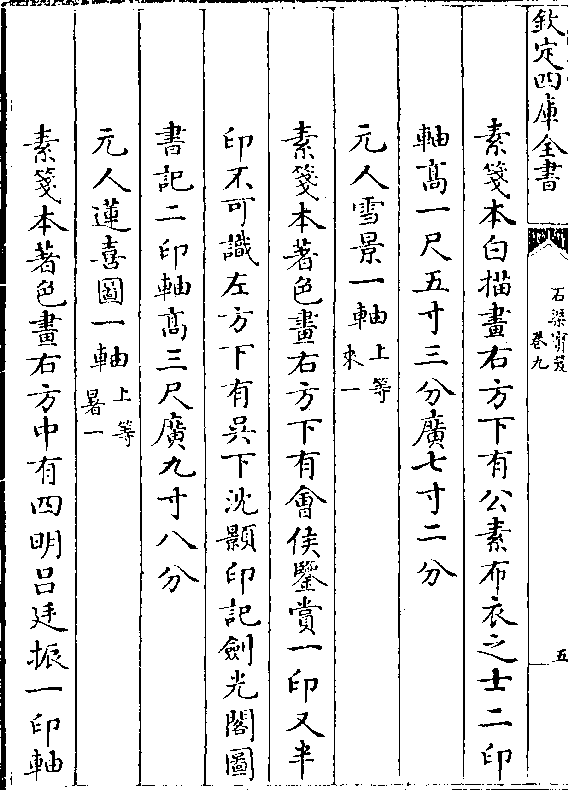 欽定四庫全書
石渠寳笈
卷九
五
素箋本白描畫右方下有公素布衣之士二印
軸髙一尺五寸三分廣七寸二分
元人雪景一軸上等來一
素箋本著色畫右方下有會侯鑒賞一印又半
印不可識左方下有吳下沈顥印記劍光閣圖
書記二印軸髙三尺廣九寸八分
元人蓮喜圖一軸上等暑一
素箋本著色畫右方中有四明吕廷振一印軸